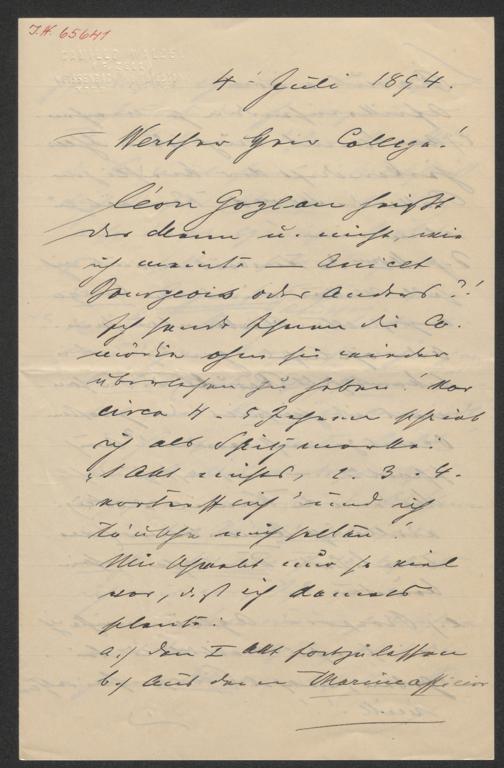 I.N. 65641
4. Juli 1894.
Werther Herr College!
Léon Gozlan heißt
der Mann u. nicht, wie
ich meinte — Anicet
Bourgeois oder Anders?!
Ich sende Ihnen die Co-
mödie ohne sie wieder
überlesen zu haben! Vor
circa 4 - 5 Jahren schrieb
ich als Spitzmarke:
"1 Akt nichts, 2. 3. 4.
vortrefflich" und ich
täusche mich selten!
Mir schwebt nur so viel
vor, daß ich damals
plante:
a.) den I Akt fortzulassen
b.) Aus dem Marineofficier